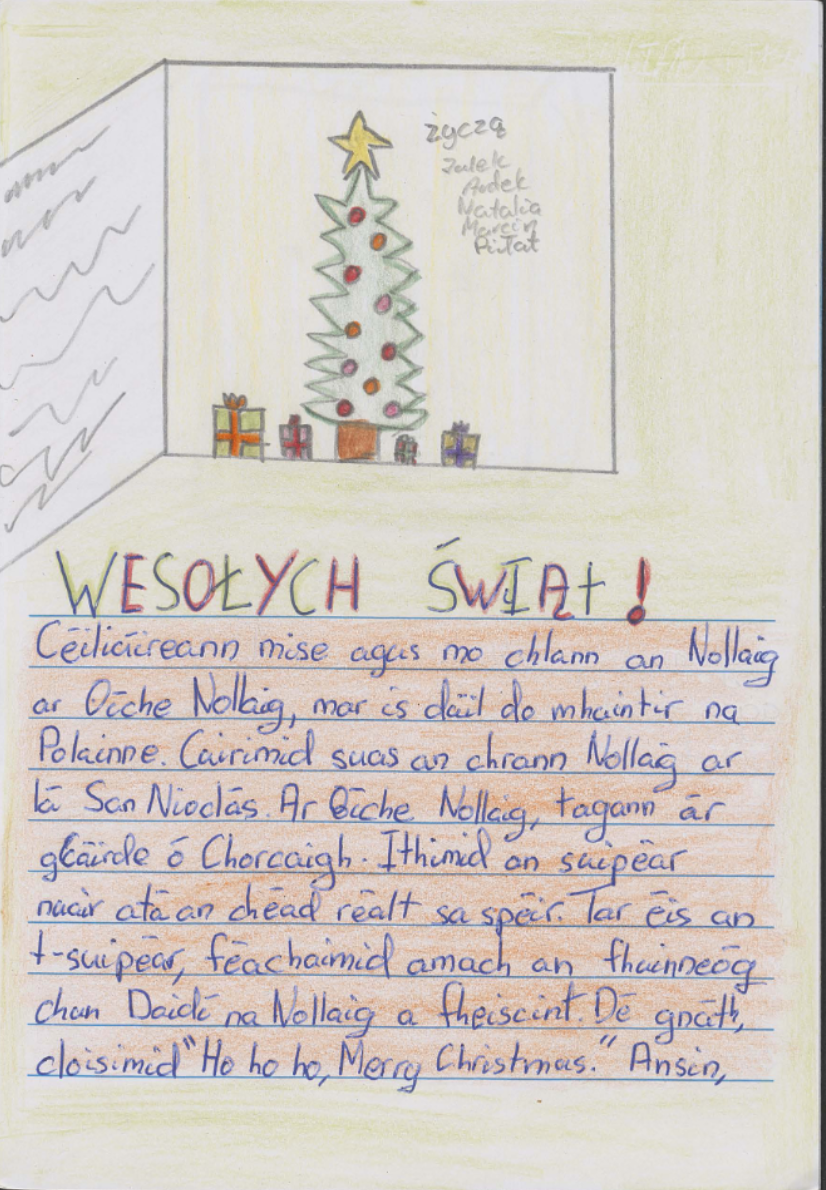 życzą
Julek
Natalia
Marcin
WESOŁYCH ŚWIĄT!
Céiliúireann mise agus mo chlann an Nollaig
ar Oíche Nollaig, mar is dúil do mhuintir na
Polainne. Cuirimid suas an chrann Nollaig ar
lá San Nioclás. Ar Oíche Nollaig, tagann ár
gcáirde ó Chorcaigh. Ithimid an suipéar
nuair atá an chéad réalt sa spéir. Tar éis an
t-suipéar, féachaimid amach an fhuinneóg
chun Daidí na Nollaig a fheiscint. Dé gnáth,
cloisimid "Ho ho ho, Merry Christmas." Ansin,